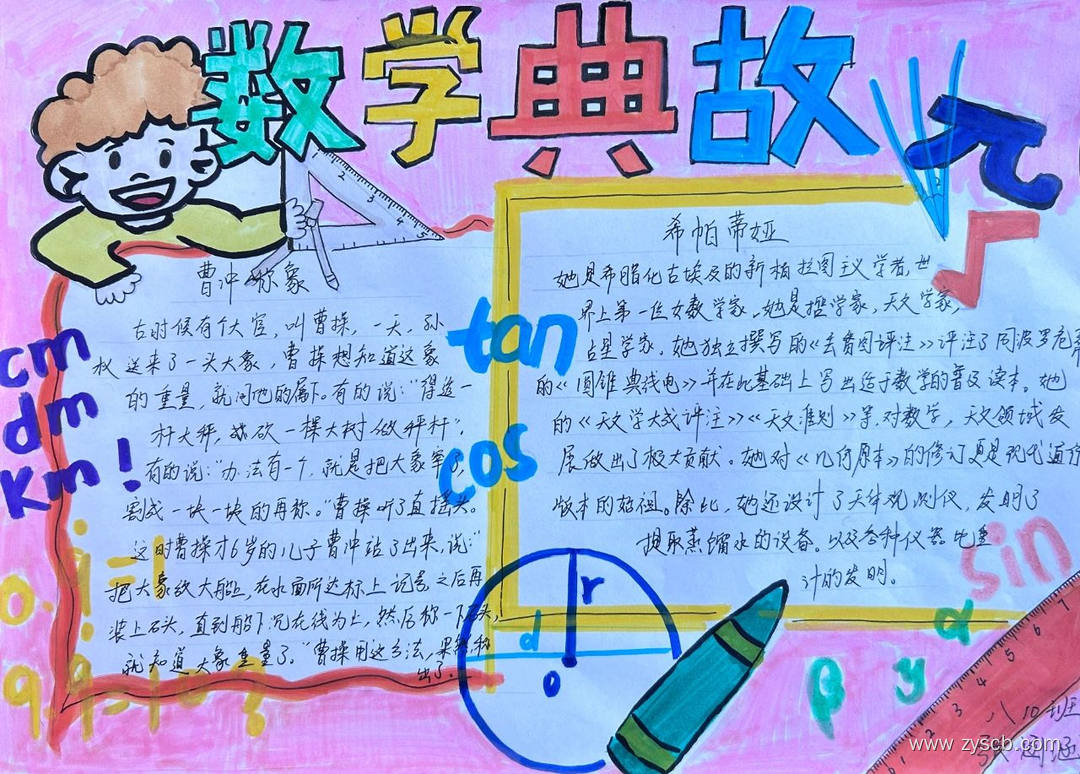 数学典故
曹冲称象
古时候有个大官，叫曹操，一天，孙
权送来了一头大象，曹操想知道这象
的重量，就问他的属下。有的说："得造一
杆大秤，砍一棵大树做秤杆"，
有的说："办法有一个，就是把大象宰了，
割成一块一块的再称。"曹操听了直摇头。
这时曹操才6岁的儿子曹冲站了出来，说："
把大象放大船上，在水面所达标上记号，之后再
装上石头，直到船下沉在线为止，然后称一下石头，
就知道大象重量了。"曹操用这方法，果然称
出了
希帕蒂娅
她是希腊化古埃及的新柏拉图主义学者，世
界上第一位女数学家，她是哲学家，天文学家，
占星学家，她独立撰写的《丢番图评注》评注了阿波罗尼
的《圆锥曲线论》并在此基础上写出适于教学的普及读本。她
的《天文学大成评注》《天文准则》等，对数学，天文领域发
展做出了极大贡献。她对《几何原本》的修订更是现代通行
版本的始祖。除此，她还设计了天体观测仪，发明了
提取蒸馏水的设备。以及各种仪器 比重
计的发明。
cm
dm
km!
tan
cos
sin
π
r
d
o
α
β
y
2
3
4
5
1
2
3
4
5
6
7
八10班
涵
www.zyscb.com